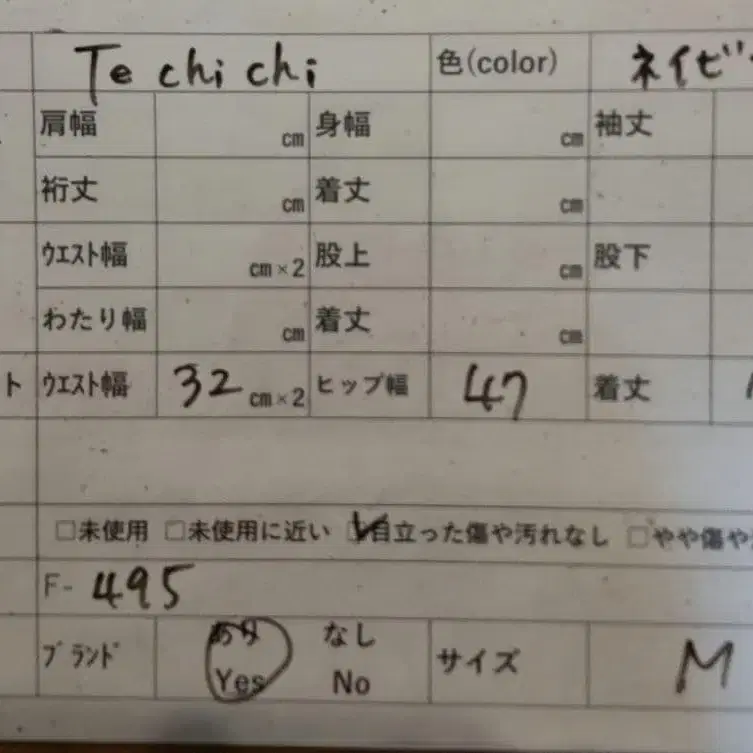 Te chi chi 色(color) ネイビ
肩幅 cm 身幅 cm 袖丈
裄丈 cm 着丈 cm
ウエスト幅 cm×2 股上 cm 股下
わたり幅 cm 着丈 cm
ト ウエスト幅 32 cm×2 ヒップ幅 47 着丈
□未使用 □未使用に近い ☑目立った傷や汚れなし □やや傷や
F- 495
ブランド あり なし サイズ M
Yes No